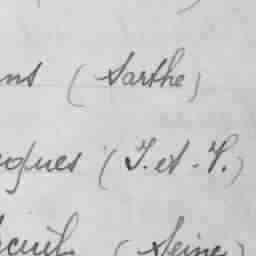 ns (Sarthe)
ques (I. et - V.)
cueil (Seine)